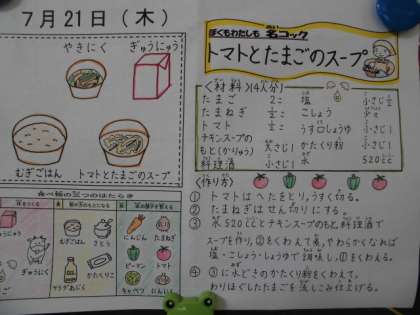 7月21日(木)
やきにく
ぎゅうにゅう
むぎごはん
トマトとたまごのスープ
食べ物の三つのはたらき
ぎゅうにく
ぎゅうにゅう
むぎごはん
さとう
サラダあぶら
かたくりこ
にんじん
たまねぎ
ピーマン
トマト
キャベツ
にんにく
ぼくもわたしも 名コック
トマトとたまごのスープ
〈材料〉(4人分)
たまご 2こ
塩 小さじ
たまねぎ
こしょう 少々
トマト
うす口しょうゆ 小さじ
チキンスープの
もと(かりゅう) 小さじ
かたくり粉 小さじ
料理酒 小さじ
水 520cc
〈作り方〉
① トマトはへたをとり、うすく切る。
② たまねぎはせん切りにする。
③ 水520ccとチキンスープのもと、料理酒で
スープを作り、②をくわえて煮、やわらかくなれば
塩・こしょう・しょうゆで調味し、①をくわえる。
④ ③に水どきのかたくり粉をくわえて、
わりほぐしたたまごを流しこみ仕上げる。